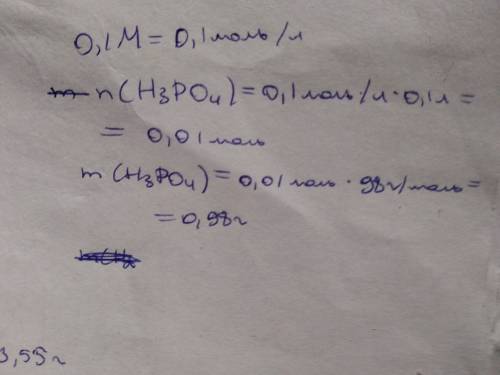 0,1М = 0,1моль/л
n(H₃PO₄) = 0,1моль/л · 0,1л =
= 0,01моль
m(H₃PO₄) = 0,01моль · 98г/моль =
= 0,98г
3,55г